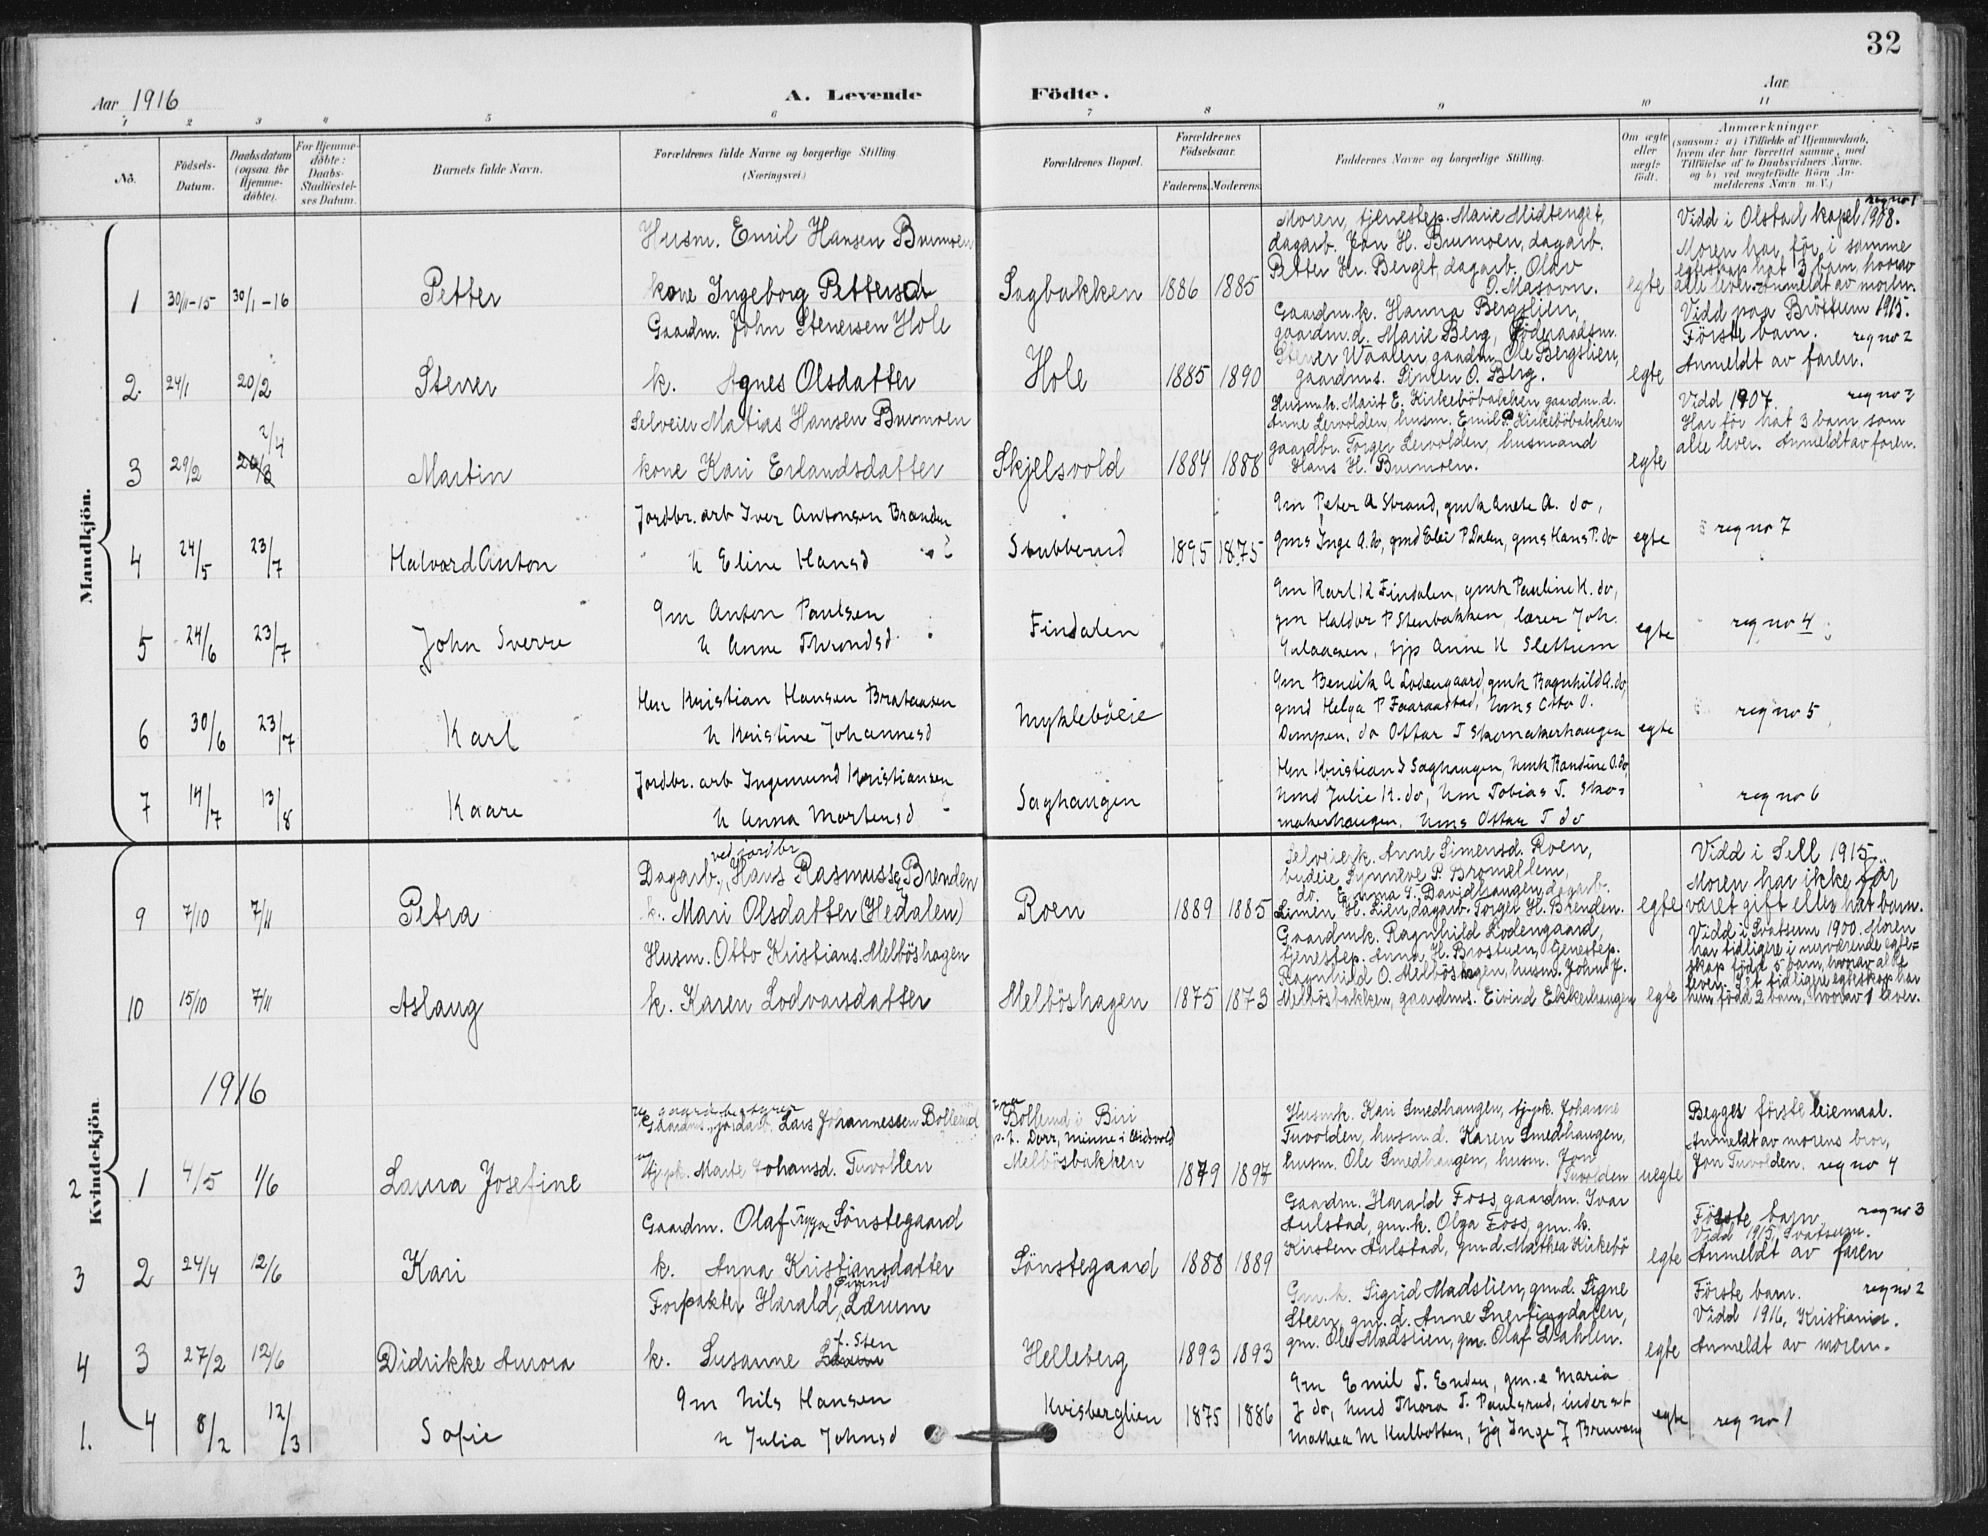 32
Aar 1916
A. Levende Födte.
Aar
1 2 3 4 5 6 7 8 9 10 11
No.
Födsels-Datum.
Daabsdatum (ogsaa for Hjemme-döbte).
For Hjemme-döbte: Daabs-Stadfæstel-ses Datum.
Barnets fulde Navn.
Forældrenes fulde Navne og borgerlige Stilling
(Næringsvei.)
Forældrenes Bopæl.
Forældrenes Födselsaar.
Faderens. Moderens.
Faddernes Navne og borgerlige Stilling.
Om ægte eller uægte födt.
Anmærkninger
(saasom: a) i Tilfælde af Hjemmedaab, hvem der har forrettet samme, med Tilföielse af to Daabsvidners Navne. og b) ved uægtefödte Börn An-melderens Navn m. V.)
Mandkjön.
1 30/11-15 30/1-16 Petter
Husm. Emil Hansen Brumoen
kone Ingeborg Pettersd
Sagbakken 1886 1885
Moren, tjenestep. Marie Midtenget,
dagarb. Jon H. Brumoen, dagarb.
Petter Kr. Berget, dagarb. Olav
O. Masovn.
egte
Vidd i Olstad kapel 1908. reg no 1
Moren har för i samme
egteskap hat 3 barn, hvorav
alle lever. Anmeldt av moren.
2 24/1 20/2 Stener
Gaardm. John Stenersen Hole
k. Agnes Olsdatter
Hole 1885 1890
Gaardm.k. Hanna Bergslien,
gaardm.d. Marie Berg, Föderaadsm.
Stener Waalen gaardm. Ole Bergslien,
gaardms. Simen O. Berg.
egte
Vidd paa Bröttum 1915.
Förste barn. reg no 2
Anmeldt av faren.
3 29/2 2/4 26/3 Martin
Selveier Matias Hansen Brumoen
kone Kari Erlandsdatter
Skjelsvold 1884 1888
Husm.k. Marit E. Kirkeböbakken gaardm.d.
Anne Lervolden, husm. Emil P. Kirkeböbakken
gaardbr. Torger Lervolden, husmand
Hans H. Brumoen.
egte
Vidd 1907. reg no 3
Har för hat 3 barn som
alle lever. Anmeldt av faren.
4 24/5 23/7 Halvard Anton
Jordbr. arb Iver Antonsen Branden
h Eline Hansd
Stubberud 1895 1875
Gm Peter A Strand, gmk Anete A. do,
gms Inge A. do, gmd Eli P Dalen, gms Hans P. do
egte
reg no 7
5 24/6 23/7 John Sverre
Gm Anton Paulsen
h Anne Throndsd
Findalen
Gm Karl K Findalen, gmk Pauline K. do,
gm Haldor P Stenbakken, lærer Joh.
tjp Anne K Slettum
egte
reg no 4
6 30/6 23/7 Karl
Hm Kristian Hansen Brataasen
h Kristine Johannesd
Mykleböeie
Gm Bendik A Lodengaard, gmk Ragnhild A. do,
gmd Helga P Faaraastad, hms Otto O.
Dempen, do Ottar T Skomakerhaugen
egte
reg no 5
7 14/7 13/8 Kaare
Jordbr. arb Ingemund Kristiansen
h Anna Mortensd
Saghaugen
Hm Kristian J Saghaugen, hmk Randine O. do,
hmd Julie K. do, hm Tobias T. Sko-
makerhaugen, hms Ottar T do
reg no 6
Kvindekjön.
9 7/10 7/11 Petra
ved jordbr
Dagarb., Hans Rasmussen Brenden
k. Mari Olsdatter (Hedalen)
Roen 1889 1885
Selveierk. Anne Simensd. Roen,
budeie Synneve P. Bromellem,
do Emma S. Davidhaugen, dagarb.
Simen H. Lien, dagarb. Torger H. Brenden.
egte
Vidd i Sell 1915
Moren har ikke för
været gift eller hat barn.
10 15/10 7/11 Aslaug
Husm. Otto Kristians. Melböshagen
k. Karen Lodvarsdatter
Melböshagen 1875 1873
Gaardmk. Ragnhild Lodengaard,
tjenestep. Anna H. Brostuen, tjenestep.
Ragnhild O. Melböshagen, husm. John J.
Melbösbakken, gaardms. Eivind Ekkerhaugen
egte
Vidd i Svatsum 1900. Moren
har tidligere i nuværende egte-
skap född 5 barn, hvorav alle
lever. I et tidligere egteskap har
hun född 2 barn, hvorav 1 lever.
1916
2 1 4/5 1/6 Laura Josefine
gaardbestyrer
Gaardms., jordarb. Lars Johannessen Bollerud
tj.pk. Marte Johansd. Tuvollen
Bollerud i Biri
p.t. Dorr, Minne i Eidsvold
Melbösbakken
1879 1897
Husmk. Kari Smedhaugen, tj.pk. Johanne
Tuvolden, husm.d. Karen Smedhaugen,
husm. Ole Smedhaugen, husm. Jon
Tuvolden
uegte
Begges förste leiemaal.
Anmeldt av morens bror,
Jon Tuvolden. reg no 4
3 2 24/4 12/6 Kari
Gaardm. Olaf Trygve Sönstegaard
k. Anna Kristiansdatter
Sönstegaard 1888 1889
Gaardm. Harald Foss, gaardm. Ivar
Aulstad, gm.k. Olga Foss, gm.k.
Kirsten Aulstad, gm.d. Mathea Kirkebö
egte
Förste barn. reg no 3
Vidd 1915, Svatsum.
Anmeldt av faren
4 3 27/2 12/6 Didrikke Aurora
Forpakter Harald Eivind Lærum
k. Susanne Lærum f. Sten
Helleberg 1893 1893
Gm.k. Sigrid Madslien, gm.d. Signe
Steen, gm.d. Anne Snertingdalen,
gm. Ole Madslien, gm. Olaf Dahlen.
egte
Förste barn. reg no 2
Vidd 1916, Kristiania.
Anmeldt av moren.
1. 4 8/2 12/3 Sofie
Gm Nils Hansen
h Julia Johnsd
Kvisberglien 1875 1886
Gm Emil T. Enden, gm.e Maria
J do, hmd Thora T. Paulsrud, inderst
Mathea M Kulbotten, tjg Inge J Bruvang
egte
reg no 1